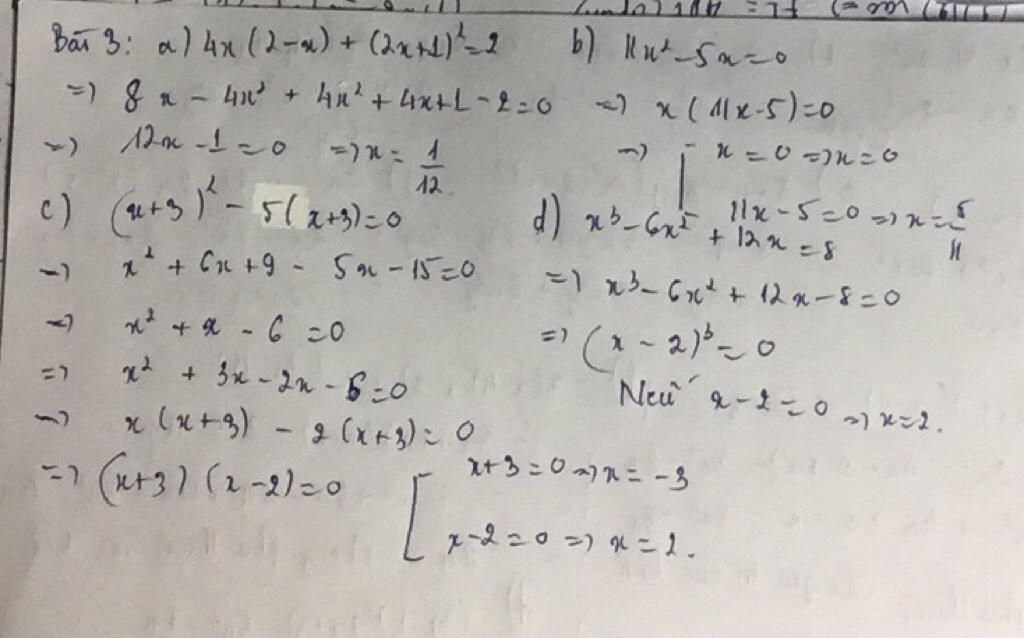 Bài 3: a) 4x(2-x) + (2x+1)² = 2
=> 8x - 4x² + 4x² + 4x+1 - 2 = 0
=> 12x - 1 = 0 => x = 1/12.
b) 11x² - 5x = 0
=> x(11x-5) = 0
=> [ x = 0 => x = 0
11x - 5 = 0 => x = 5/11
c) (x+3)² - 5(x+3) = 0
=> x² + 6x + 9 - 5x - 15 = 0
=> x² + x - 6 = 0
=> x² + 3x - 2x - 6 = 0
=> x(x+3) - 2(x+3) = 0
=> (x+3)(x-2) = 0 [ x+3 = 0 => x = -3
x-2 = 0 => x = 2.
d) x³ - 6x² + 12x = 8
=> x³ - 6x² + 12x - 8 = 0
=> (x - 2)³ = 0
Nếu x - 2 = 0 => x = 2.